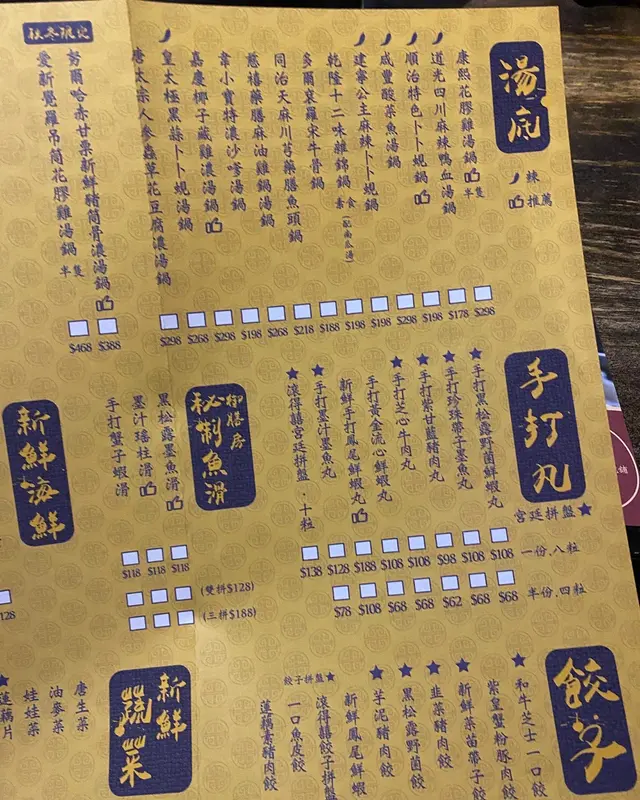 湯底
辣
推薦
康熙花膠雞湯鍋 半隻
道光四川麻辣鴨血湯鍋
順治特色卜卜蜆鍋
咸豐酸菜魚湯鍋
建寧公主麻辣卜卜蜆鍋
乾隆十二味雜錦鍋 素食(配南瓜湯)
多爾袞羅宋牛骨鍋
同治天麻川芎藥膳魚頭鍋
慈禧藥膳麻油雞鍋湯鍋
韋小寶特濃沙嗲湯鍋
嘉慶椰子藏雞濃湯鍋
皇太極黑蒜卜卜蜆湯鍋
唐太宗人參蟲草花豆腐濃湯鍋
$298
$178
$198
$298
$198
$198
$188
$218
$268
$198
$298
$268
$298
秋冬限定
努爾哈赤甘栗新鮮豬筒骨濃湯鍋
愛新覺羅吊筒花膠雞湯鍋 半隻
$388
$468
手打丸
宮廷拼盤★
一份.八粒
半份.四粒
★手打黑松露野菌鮮蝦丸
★手打珍珠帶子墨魚丸
★手打紫甘藍豬肉丸
★手打芝心牛肉丸
手打黃金流心鮮蝦丸
新鮮手打鳳尾鮮蝦丸
★手打墨汁墨魚丸
★滾得囍宮廷拼盤.十粒
$108
$108
$98
$108
$108
$188
$128
$138
$68
$68
$62
$68
$68
$108
$78
御膳房
秘制魚滑
黑松露墨魚滑
墨汁瑤柱滑
手打蟹子蝦滑
$118
$118
$118
(雙拼$128)
(三拼$188)
新鮮海鮮
128
餃子
★和牛芝士一口餃
紫皇蟹粉豚肉餃
★新鮮菜苗帶子餃
★韭菜豬肉餃
★黑松露野菌餃
★芋泥豬肉餃
新鮮鳳尾鮮蝦
餃子拼盤★
滾得囍餃子拼盤
一口魚皮餃
蓮藕素豬肉餃
新鮮蔬菜
唐生菜
油麥菜
娃娃菜
蓮藕片